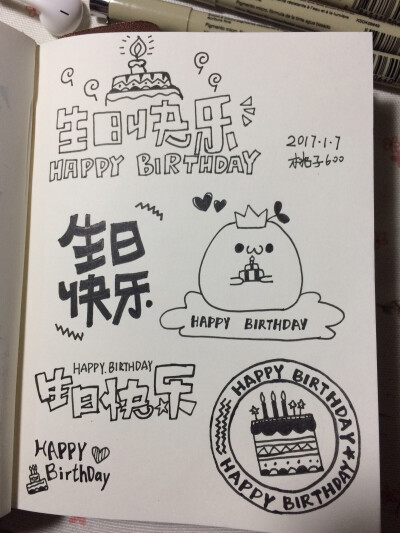 生日快乐
HAPPY BIRTHDAY
2017.1.7
桃子600
生日
快乐
HAPPY BIRTHDAY
HAPPY.BIRTHDAY
生日快乐
HAPPY
BirthDay
HAPPY BIRTHDAY
HAPPY BIRTHDAY